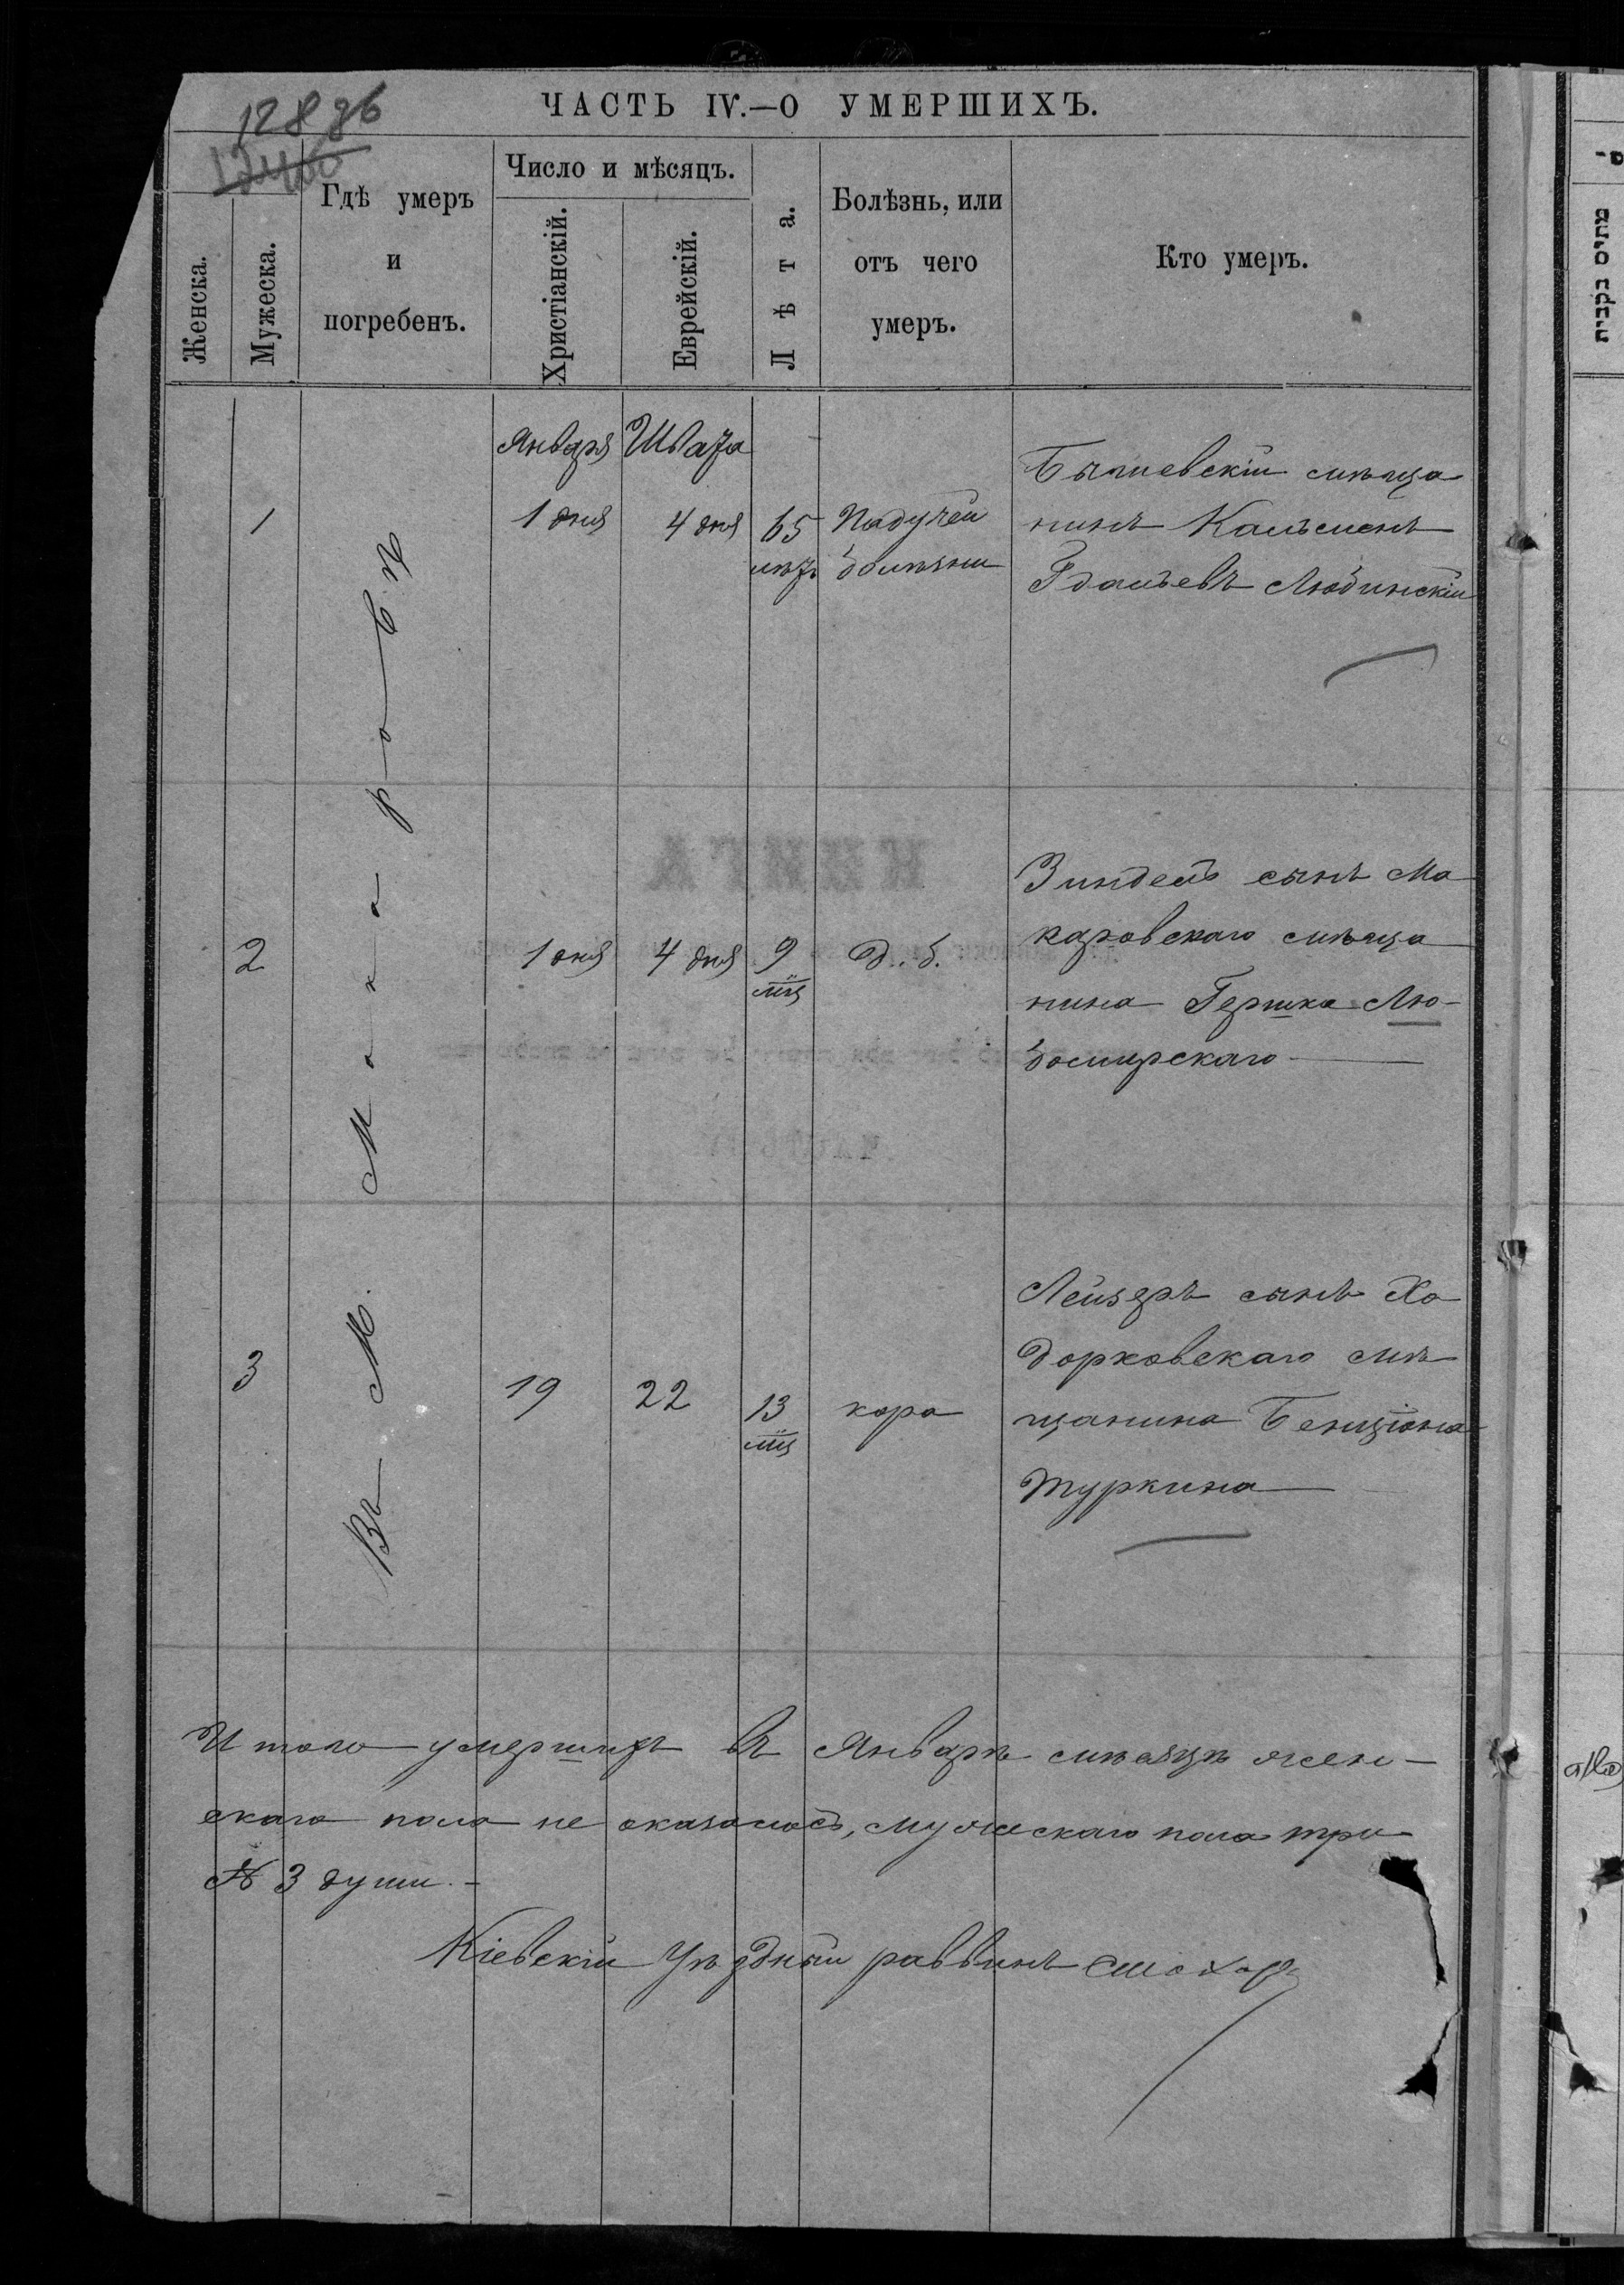 ЧАСТЬ IV.—О УМЕРШИХЪ.
128 зв
Женска.
Мужеска.
Гдѣ умеръ
и
погребенъ.
Число и мѣсяцъ.
Христіанскій.
Еврейскій.
Лѣта.
Болѣзнь, или
отъ чего
умеръ.
Кто умеръ.
Въ М. Макаровѣ
Января Швата
1
1 дня
4 дня
65
лѣтъ
Падучей
болѣзни
Бышевскій мѣща
нинъ Кальменъ
Гдальевъ Любинскій
2
1 дня
4 дня
9
мц
д. б.
Зиндель сынъ Ма
каровскаго мѣща
нина Гершка Лю-
бомирскаго
3
19
22
13
мц
кора
Лейзеръ сынъ Хо
дорковскаго мѣ
щанина Бенціона
Туркина
Итого умершихъ въ Январѣ мѣсяцѣ жен-
скаго пола не оказалось, мужескаго пола три
№ 3 души.-
Кіевскій Уѣздный раввинъ